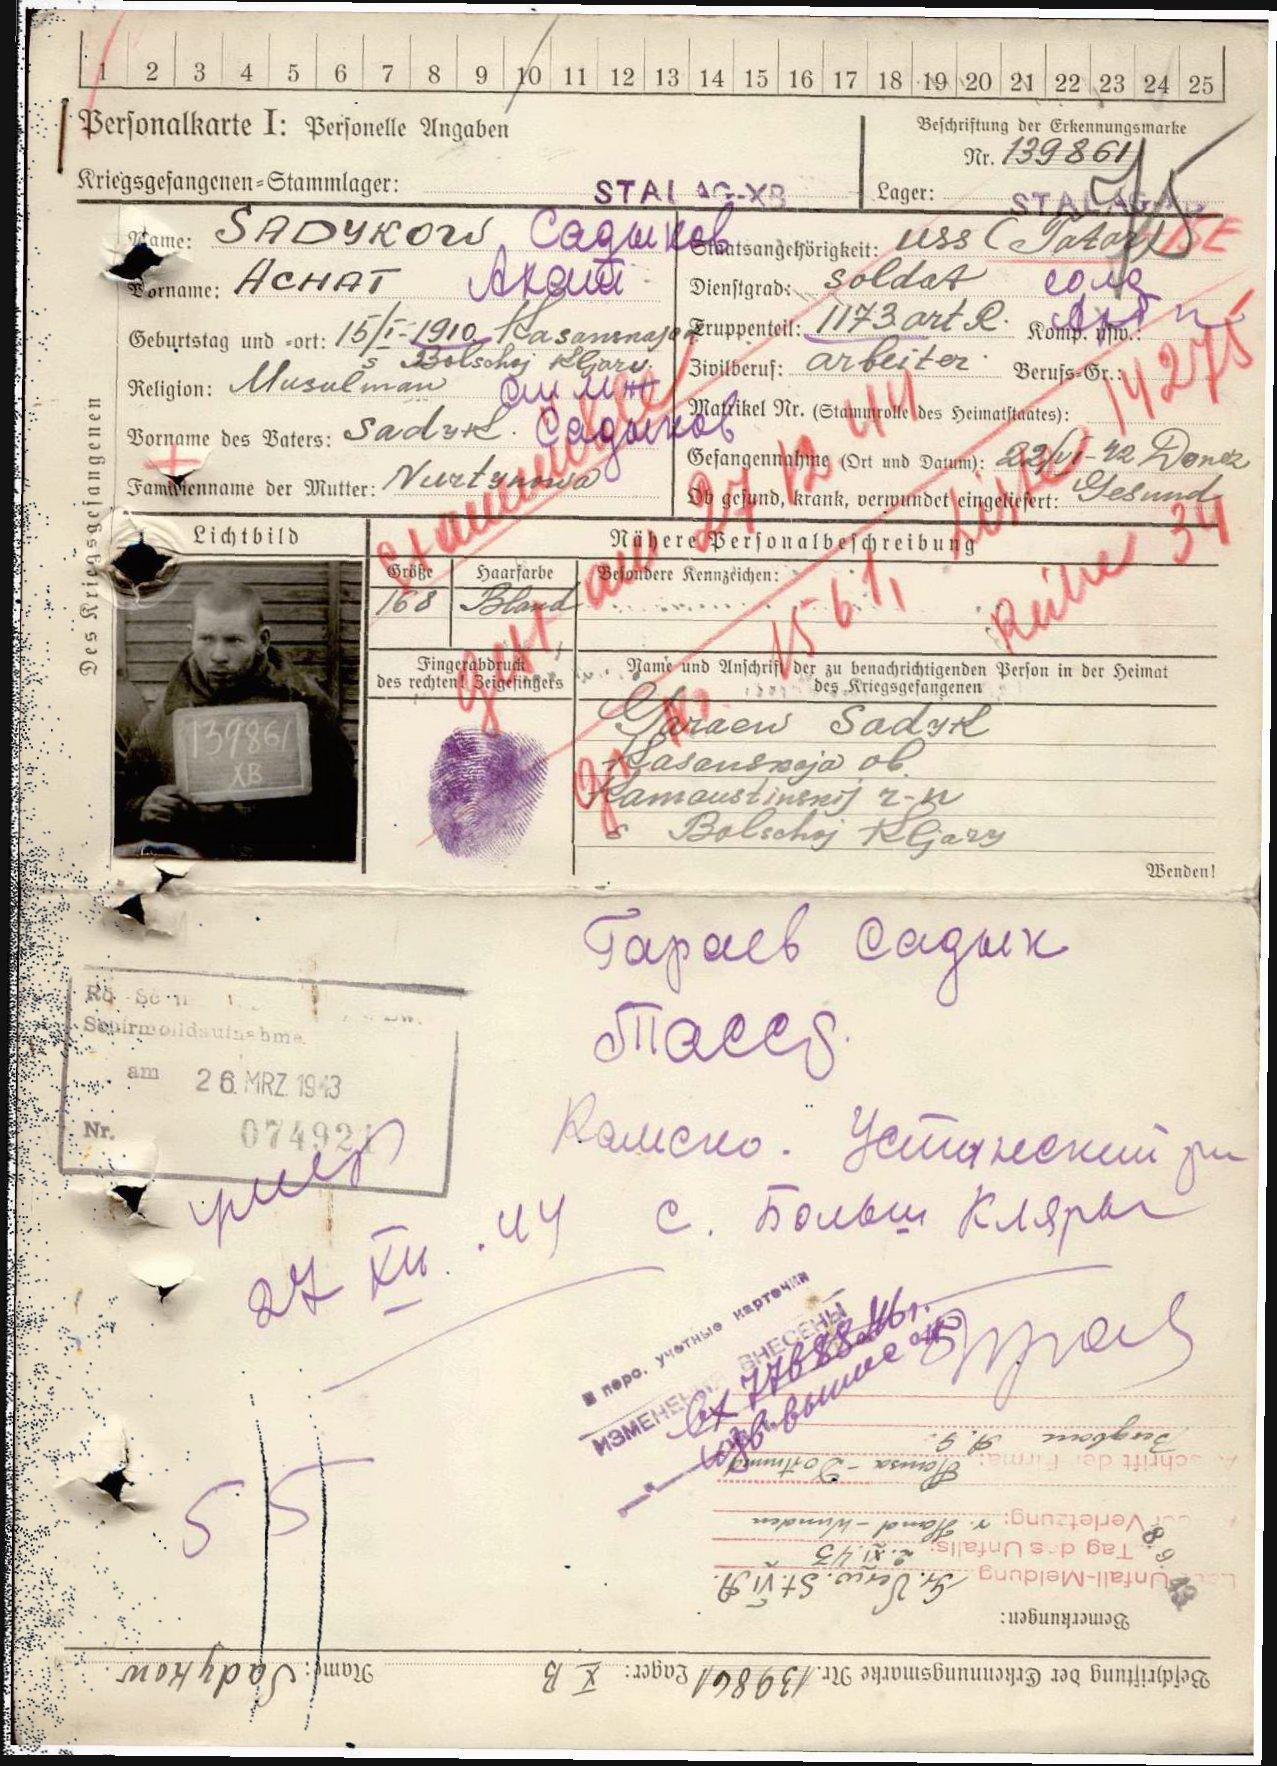 1 2 3 4 5 6 7 8 9 10 11 12 13 14 15 16 17 18 19 20 21 22 23 24 25
Personalkarte I: Personelle Angaben
Kriegsgefangenen=Stammlager: STALAG-XB
Beschriftung der Erkennungsmarke
Nr. 139861
Lager: STALAG XB
Des Kriegsgefangenen
Name: SADYKOW Садыков
Vorname: ACHAT Ахат
Geburtstag und =ort: 15/I-1910 Kasanskaja
s Bolschoj KGary.
Religion: Musulman
Vorname des Vaters: Sadyk Садыков
Familienname der Mutter: Nurtynowa
Staatsangehörigkeit: USS (Tatar)
Dienstgrad: Soldat солд
Truppenteil: 1173 art R. Komp. usw.: Арт п
Zivilberuf: arbeiter Berufs=Gr.:
Matrikel Nr. (Stammrolle des Heimatstaates):
Gefangennahme (Ort und Datum): 22/VI-42 Donez
Ob gesund, krank, verwundet eingeliefert: Gesund
gest am 27 12 44
gr. No. 1561, 14275
Reihe 34
Lichtbild
Nähere Personalbeschreibung
Größe Haarfarbe Besondere Kennzeichen:
168 Bland
Fingerabdruck
des rechten Zeigefingers
Name und Anschrift der zu benachrichtigenden Person in der Heimat
des Kriegsgefangenen
139861
XB
Garaew Sadyk
Kasanskaja ob.
Kamaustinskij r-n
s Bolschoj KGary
Wenden!
Гараев Садык
ТАССР.
Камско. Устинский рн
с. Больш Кляры
Schirmbildaufnahme
am 26. MRZ. 1943
Nr. 074921
умер
27 XII. 44
В перс. учетные карточки
ИЗМЕНЕНИЯ ВНЕСЕНЫ
Вх 77688 46г.
55
Anschrift der Firma: Hansa - Dortmund
Bergbau A.G.
Art der Verletzung: r. Hand-Wunden
Tag des Unfalls: 2.XI.43
Unfall-Meldung
Gr. Verw. St. VI A.
Bemerkungen:
Beschriftung der Erkennungsmarke Nr. 139861 Lager: X B Name: Sadykow